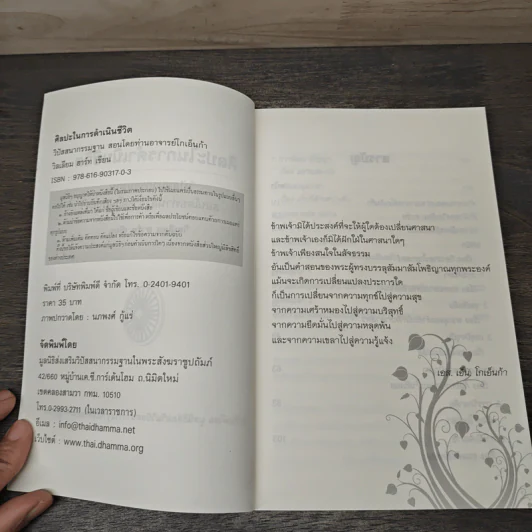 ศิลปะในการดำเนินชีวิต
วิปัสสนากรรมฐาน สอนโดยท่านอาจารย์โกเอ็นก้า
วิลเลียม ฮาร์ท เขียน
ISBN : 978-616-90317-0-3
พิมพ์ที่ บริษัทพิมพ์ดี จำกัด โทร. 0-2401-9401
ราคา 35 บาท
ภาพปกวาดโดย : นภพงศ์ กู้แร่
จัดพิมพ์โดย
มูลนิธิส่งเสริมวิปัสสนากรรมฐานในพระสังฆราชูปถัมภ์
42/660 หมู่บ้านเค.ซี.การ์เด้นโฮม ถ.นิมิตใหม่
เขตคลองสามวา กทม. 10510
โทร.0-2993-2711 (ในเวลาราชการ)
อีเมล : info@thaidhamma.net
เว็บไซต์ : www.thai.dhamma.org
ข้าพเจ้ามิได้ประสงค์ที่จะให้ผู้ใดต้องเปลี่ยนศาสนา
และข้าพเจ้าเองก็มิได้ฝักใฝ่ในศาสนาใดๆ
ข้าพเจ้าเพียงสนใจในสัจธรรม
อันเป็นคำสอนของพระผู้ทรงบรรลุสัมมาสัมโพธิญาณทุกพระองค์
แม้นจะเกิดการเปลี่ยนแปลงประการใด
ก็เป็นการเปลี่ยนจากความทุกข์ไปสู่ความสุข
จากความเศร้าหมองไปสู่ความบริสุทธิ์
จากความยึดมั่นไปสู่ความหลุดพ้น
และจากความเขลาไปสู่ความรู้แจ้ง
เอส. เอ็น. โกเอ็นก้า